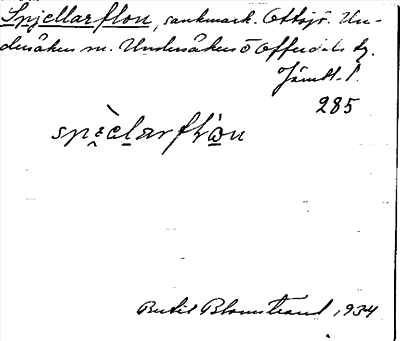 Spjellarflon, sankmark. Ottsjö. Un-
dersåkers sn. Undersåkers o Offerdals tg.
Jämtl. l.
285
spèclarflòn
Bertil Blomstrand 1934